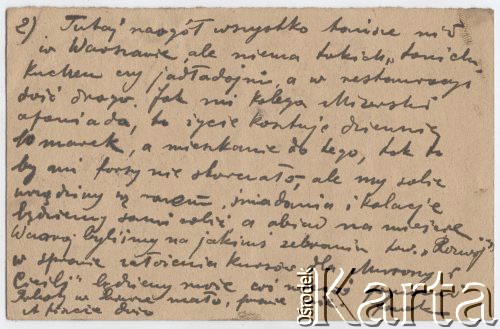 2) Tutaj naogół wszystko tańsze niż
w Warszawie, ale niema takich „tanich
kuchen czy jadłodajni, a w restauracji
dość drogo. Jak mi kolega Mizerski
opowiada, to życie kosztuje dziennie
10 marek, a mieszkanie do tego, tak to
by mi forsy nie starczało, ale my sobie
urządzimy się razem, śniadania i kolacje
będziemy sami robić a obiad na miejscu
Wczoraj byliśmy na jakimś zebraniu tow. „Rozwój”
w sprawie założenia kursów dla
będziemy może coś
w biurze mało, prawie
dnie
Ośrodek
Karta